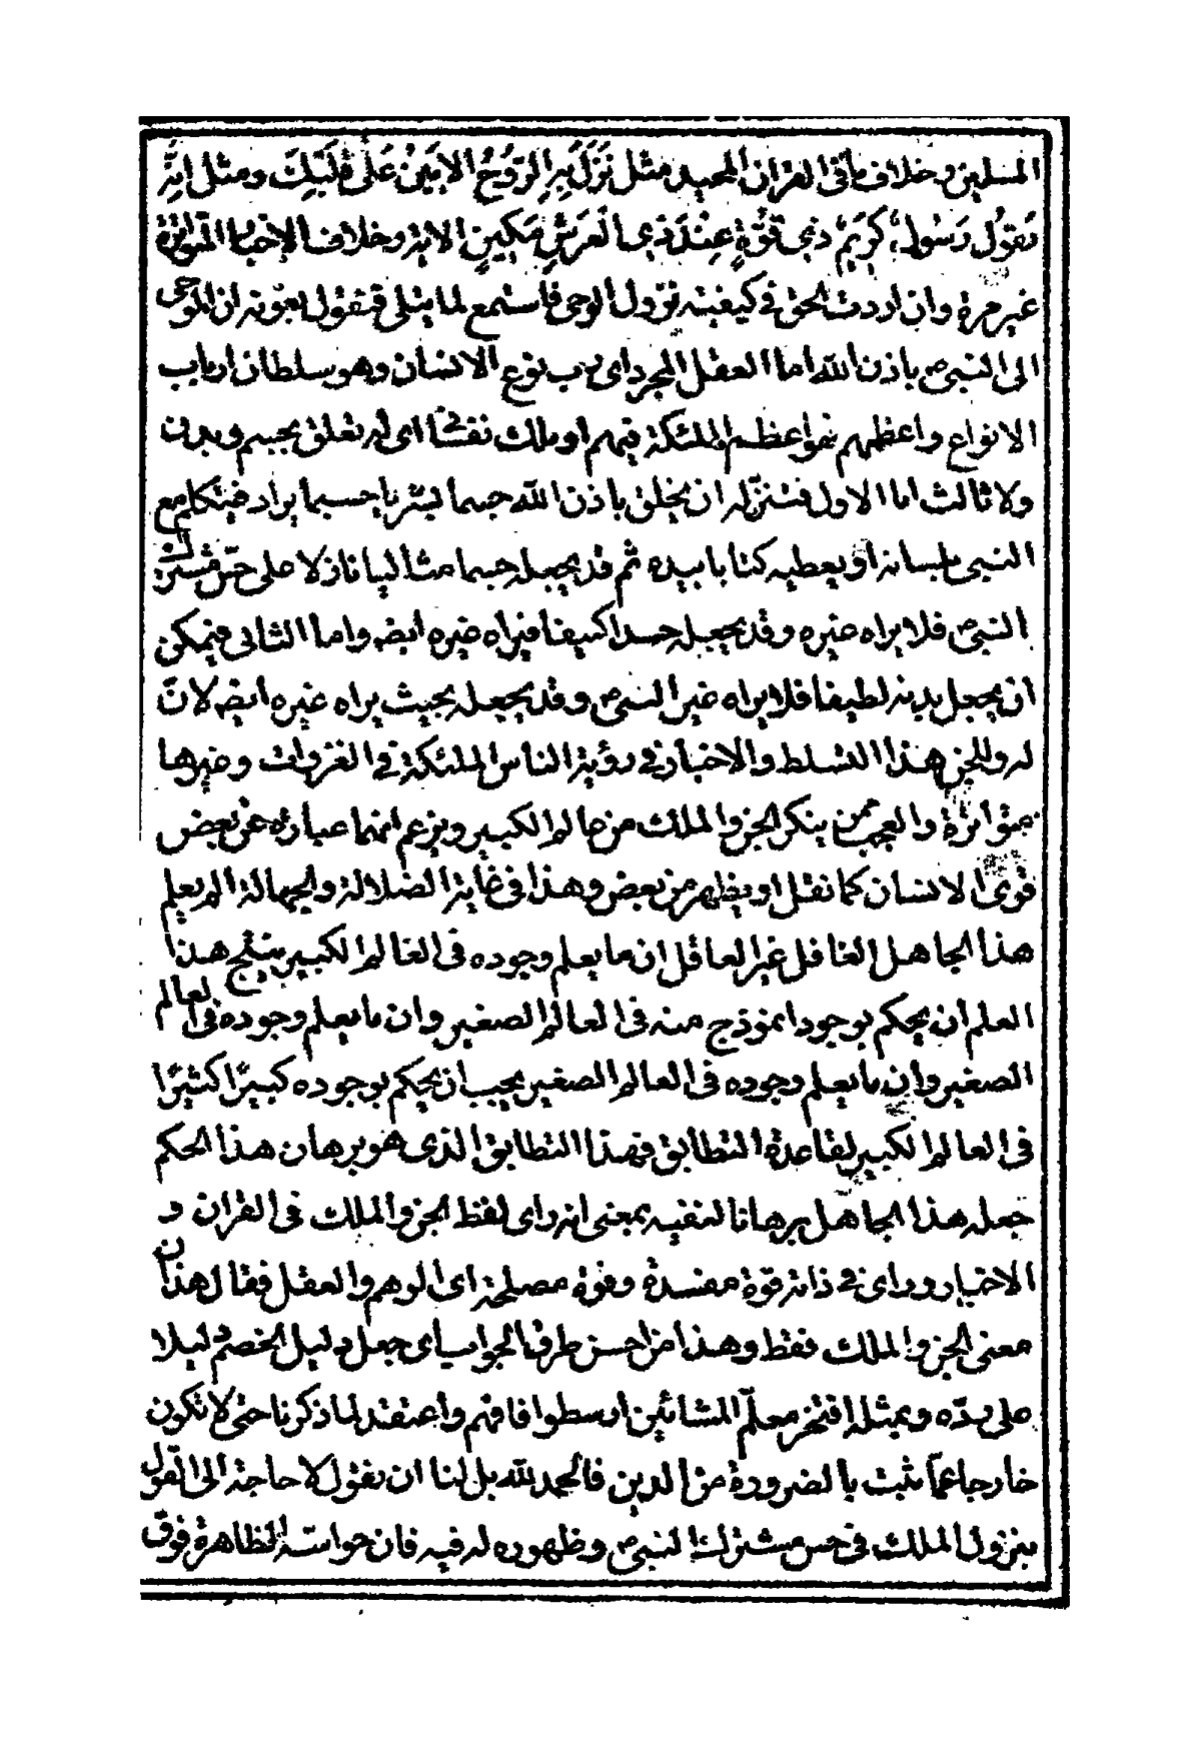 المسلمين وخلاف ما في القران المجيد مثل نَزَلَ بِهِ الرّوُحُ الاَمَينُ عَلىٰ قَلْبِكَ ومثل اِنَّهُ
لَقوُلُ رَسُولٍ كَرَيمٍ ذي قُوَّةٍ عِنْدَ ذِي الْعَرَشِ مَكِينٍ الاية وخلاف الاخبار المتواترة
غير مرة وان اردت الحق في كيفية نزول الوحى فاستمع لما يتلى فنقول بعونه ان الموحى
الى النبى ص باذن الله اما العقل المجرد اى رب نوع الانسان وهو سلطان ارباب
الانواع واعظمهم فهو اعظم الملئكة فيهم او ملك نفسانى اى له تعلق بجسم وبدن
ولا ثالث اما الاول فتنزله ان يخلق باذن الله جسما بشريا حسبما يراد فيتكلم مع
النبى بلسانه او يعطيه كتابا بيده ثم قد يجعله جسما مثاليا نازلا على حسّ مشترك
النبى ص فلا يراه غيره وقد يجعله جسدا كثيفا فيراه غيره ايضه واما الثانى فيمكن
ان يجعل بدنه لطيفا فلا يراه غير النبى ص وقد يجعله بحيث يراه غيره ايضه لانّ
له وللجن هذا التسلط والاخبار في رؤية الناس الملئكة في الغزوات وغيرها
متواترة والعجب ممن ينكر الجن والملك من عالم الكبير ويزعم انهما عبارة عن بعض
قوى الانسان كما نقل او يظهر من بعض وهذا في غاية الضلالة والجهالة الم يعلم
هذا الجاهل الغافل غير العاقل ان ما يعلم وجوده في العالم الكبير ينتج هذا
العلم ان يحكم بوجود انموذج منه في العالم الصغير وان ما يعلم وجوده في العالم
الصغير وان ما يعلم وجوده في العالم الصغير يجب ان يحكم بوجوده كبيرًا كثيرًا
في العالم الكبير لقاعدة التطابق فهذا التطابق الذى هو برهان هذا الحكم
جعله هذا الجاهل برهانا لنفيه بمعنى انه راى لفظ الجن والملك في القران و
الاخبار وراى في ذاته قوة مفسدة وقوة مصلحة اى الوهم والعقل فقال هذان
معنى الجن والملك فقط وهذا من احسن طرق الجواب اى جعل دليل الخصم دليلا
على ردّه وبمثله افتخر معلّم المشائين ارسطو فافهم واعتقد لما ذكرنا حتى لا تكون
خارجا عمّا ثبت بالضرورة من الدين فالحمد لله بل لنا ان نقول لا حاجة الى القول
بنزول الملك في حس مشترك النبى ص وظهوره له فيه فان حواسّه الظاهرة فوق